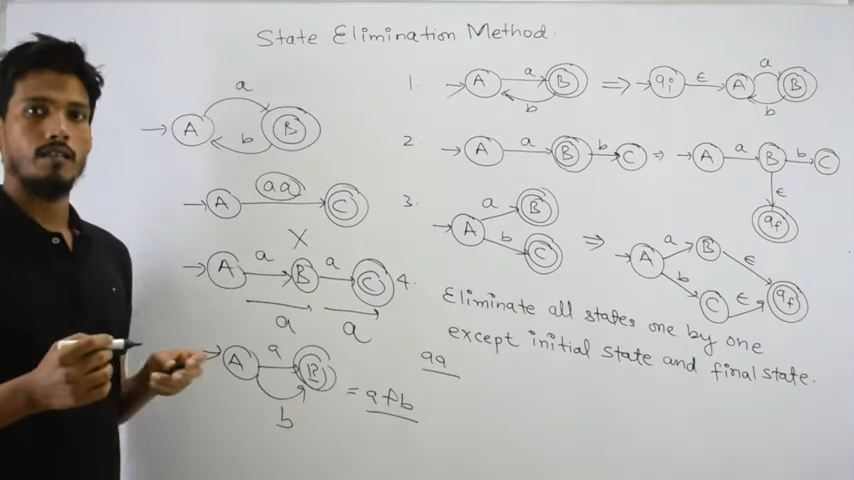 State Elimination Method.
a
A B
b
aa
A C
X
A a B a C
a a
A a B
b
= a+b
1. A a B b ⇒ qi ε A a B b
2. A a B b C ⇒ A a B b C
ε
qf
3. A a B
b C
⇒ A a B ε
b C ε qf
4. Eliminate all states one by one
except initial state and final state.
aa